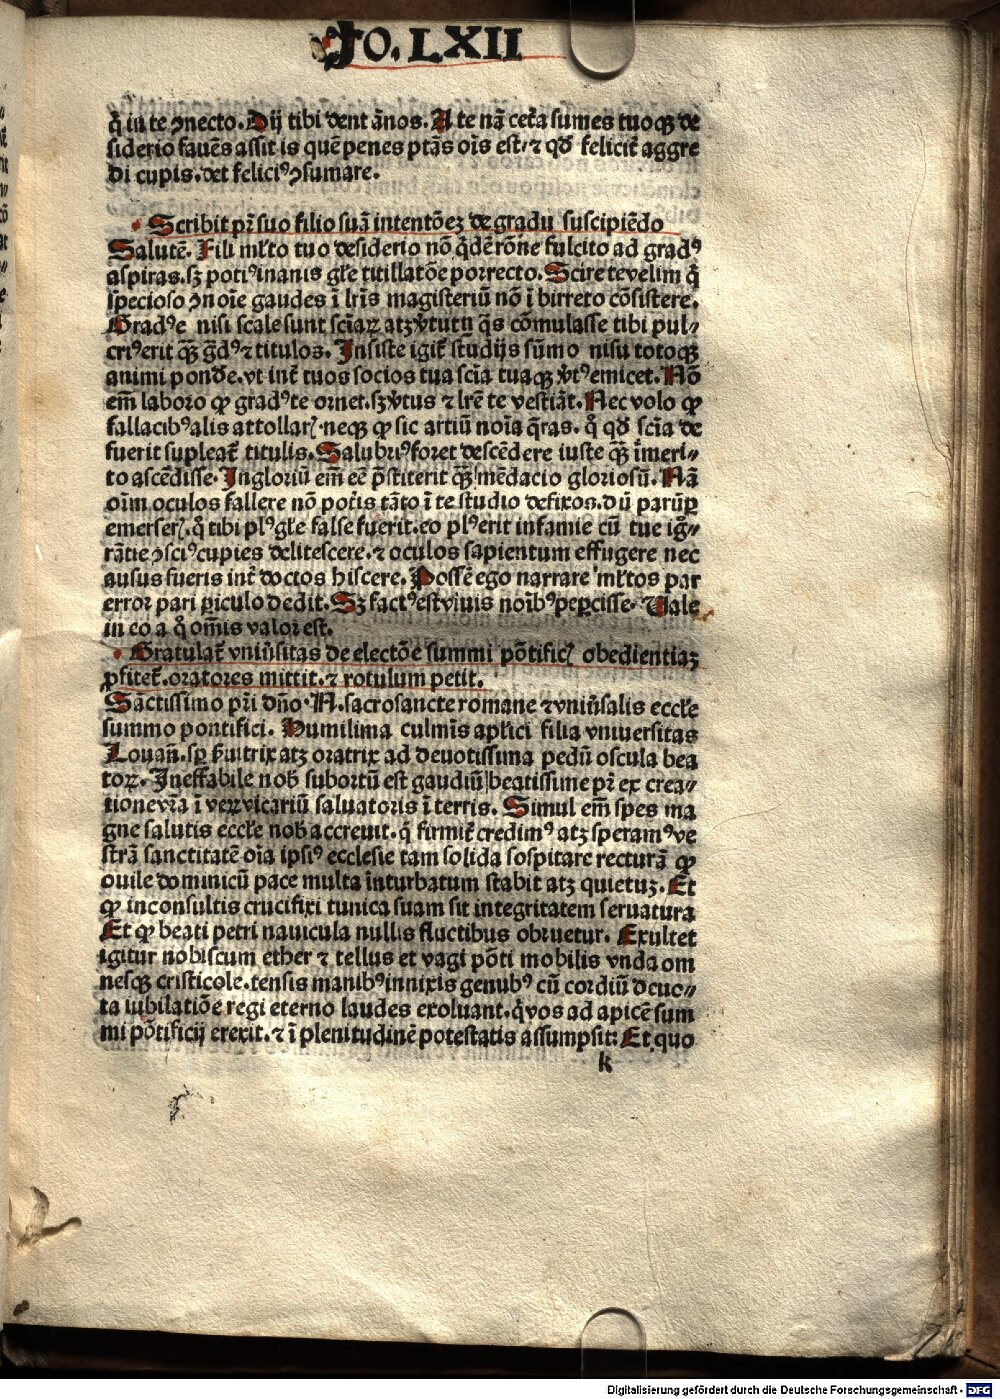 FO. LXII
q̄ in te ꝯnecto. Dij tibi dent ānos. A te nā cet̄a sumes tuoqꝫ de
siderio fauēs assit is quē penes ptās oīs est. ⁊ qđ felicit̄ aggre
di cupis. det feliciꝰ ꝯsumare.
Scribit pr̄ suo filio suā intentōeꝫ de gradu suscipiēdo
Salutē. Fili ml̄to tuo desiderio nō q̄dē rōne fulcito ad gradꝰ
aspiras. sꝫ potiꝰ inanis gl̄e titillatōe porrecto. Scire te velim q̄
specioso ꝯ noīe gaudes ī lr̄is magisteriū nō ī birreto cōsistere.
Gradꝰe nisi scale sunt scīaꝝ atqꝫ v̄tutū q̄s cōmulasse tibi pul⸗
criꝰ erit qꝫ̄ ḡdꝰ ⁊ titulos. Insiste igit̄ studijs sūmo nisu totoqꝫ
animi ponde. vt int̄ tuos socios tua scīa tuaqꝫ v̄tꝰ emicet. Nō
em̄ laboro ꝙ gradꝰ te ornet. sꝫ v̄tus ⁊ lr̄e te vestiāt. Nec volo ꝙ
fallacibꝰ alis attollarꝭ. neqꝫ ꝙ sic artiū noīa q̄ras. q̊ qđ scīa de
fuerit supleat̄ titulis. Salubriꝰ foret descēdere iuste qꝫ̄ īmeri⸗
to ascēdisse. Ingloriū em̄ eē p̄stiterit qꝫ̄ mēdacio gloriosū. Nā
oīm oculos fallere nō pot̄is tāto ī te studio defixos. dū parūꝑ
emerserꝭ. q̊ tibi plꝰ gl̄e false fuerit. eo plꝰ erit infamie cū tue iḡ⸗
rātie ꝯsciꝰ cupies delitescere. ⁊ oculos sapientum effugere nec
ausus fueris int̄ doctos hiscere. Possē ego narrare ml̄tos par
error pari ꝑiculo dedit. Sꝫ factꝰ est viuis noībꝰ peꝑcisse. Vale
in eo a q̊ om̄is valor est.
Gratulat̄ vniūsitas de electōe summi pōtificꝭ obedientiaꝫ
ꝓfitet̄. oratores mittit. ⁊ rotulum petit.
Sāctissimo pr̄i dn̄o. N. sacrosancte romane ⁊ vniūsalis eccl̄e
summo pontifici. Humilima culmīs apl̄ici filia vniuersitas
Louan̄. sp̄ ẜuitrix atqꝫ oratrix ad deuotissima pedū oscula bea
toꝝ. Ineffabile nob̄ subortū est gaudiū beatissime pr̄ ex crea⸗
tione vr̄a ī veꝝ vicariū saluatoris ī terris. Simul em̄ spes ma
gne salutis eccl̄e nob̄ accreuit. q̄ firmit̄ credimꝰ atqꝫ speramꝰ ve
strā sanctitatē oīa ipsiꝰ ecclesie tam solida sospitare recturā ꝙ
ouile dominicū pace multa īnturbatum stabit atqꝫ quietuꝫ. Et
ꝙ inconsultis crucifixi tunica suam sit integritatem seruatura
Et ꝙ beati petri nauicula nullis fluctibus obruetur. Exultet
igitur nobiscum ether ⁊ tellus et vagi pōti mobilis vnda om
nesqꝫ cristicole. tensis manibꝰ innixis genubꝰ cū cordiū deuo⸗
ta iubilatiōe regi eterno laudes exoluant. qͥ vos ad apicē sum
mi pōtificij erexit. ⁊ ī plenitudinē potestatis assumpsit: Et quo
k
Digitalisierung gefördert durch die Deutsche Forschungsgemeinschaft - DFG